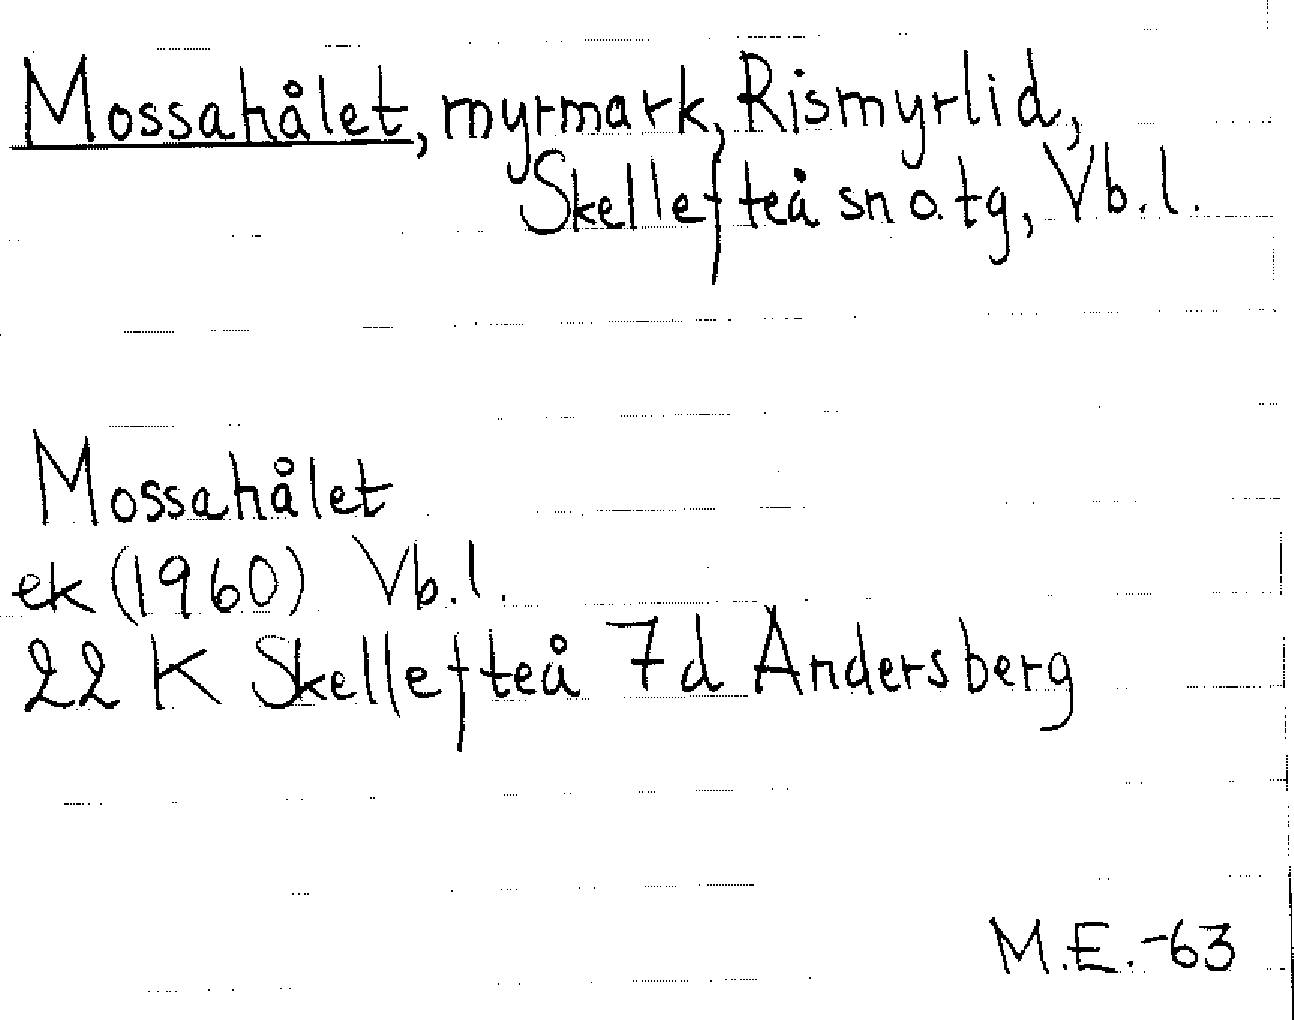 Mossahålet, myrmark, Rismyrlid,
Skellefteå sn o. tg, Vb. l.
Mossahålet
ek (1960) Vb. l.
22 K Skellefteå 7d Andersberg
M.E.-63